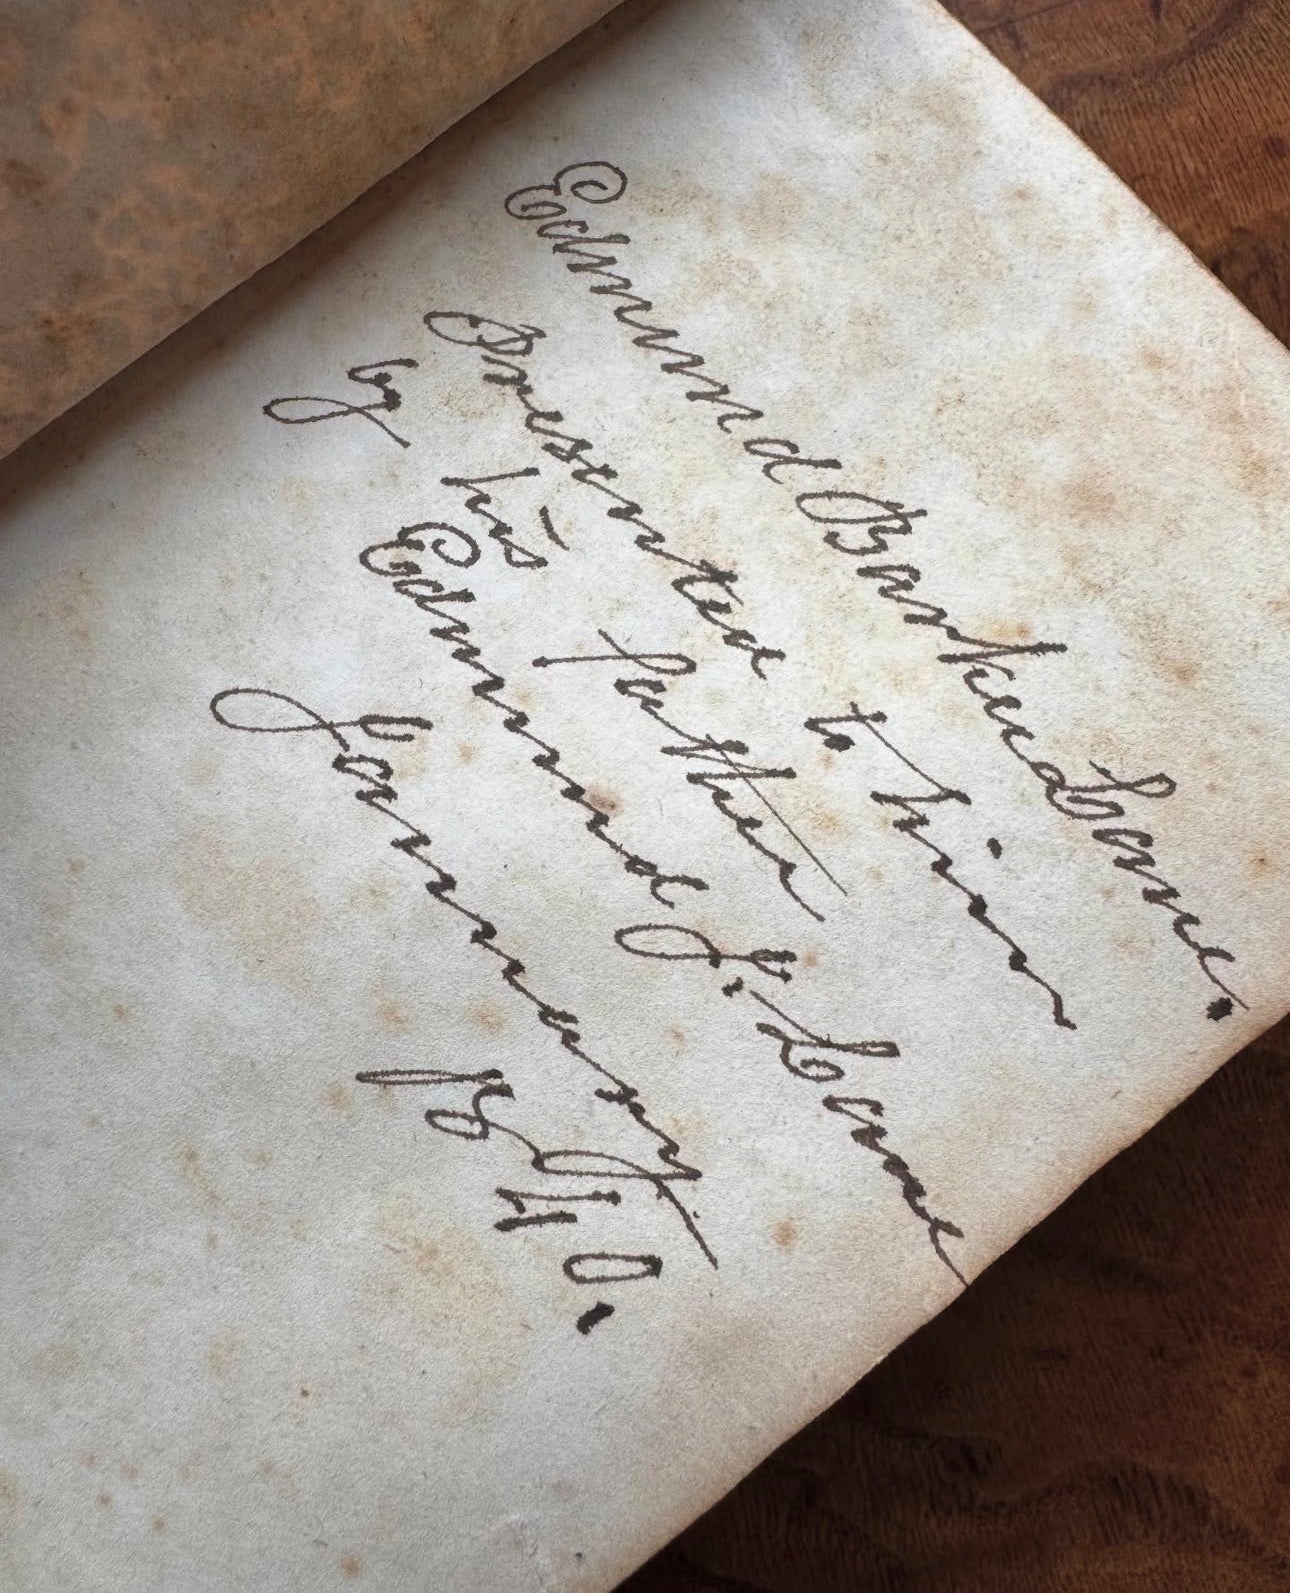 Edmund Lane.
Presented to him
by his father
Edmund J. Lane
January
1840.